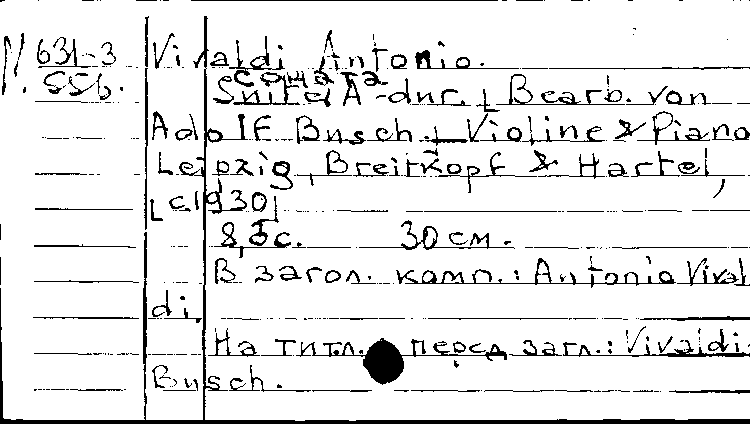 N 631-3 Vivaldi Antonio.
556. соната
Suite A-dur. [Bearb. von
Adolf Busch.] Violine & Piano
Leipzig, Breitkopf & Hartel,
[c1930]
8,5 с. 30 см.
В загол. комп.: Antonio Vival
di.
На титл. перед загл.: Vivaldi-
Busch.